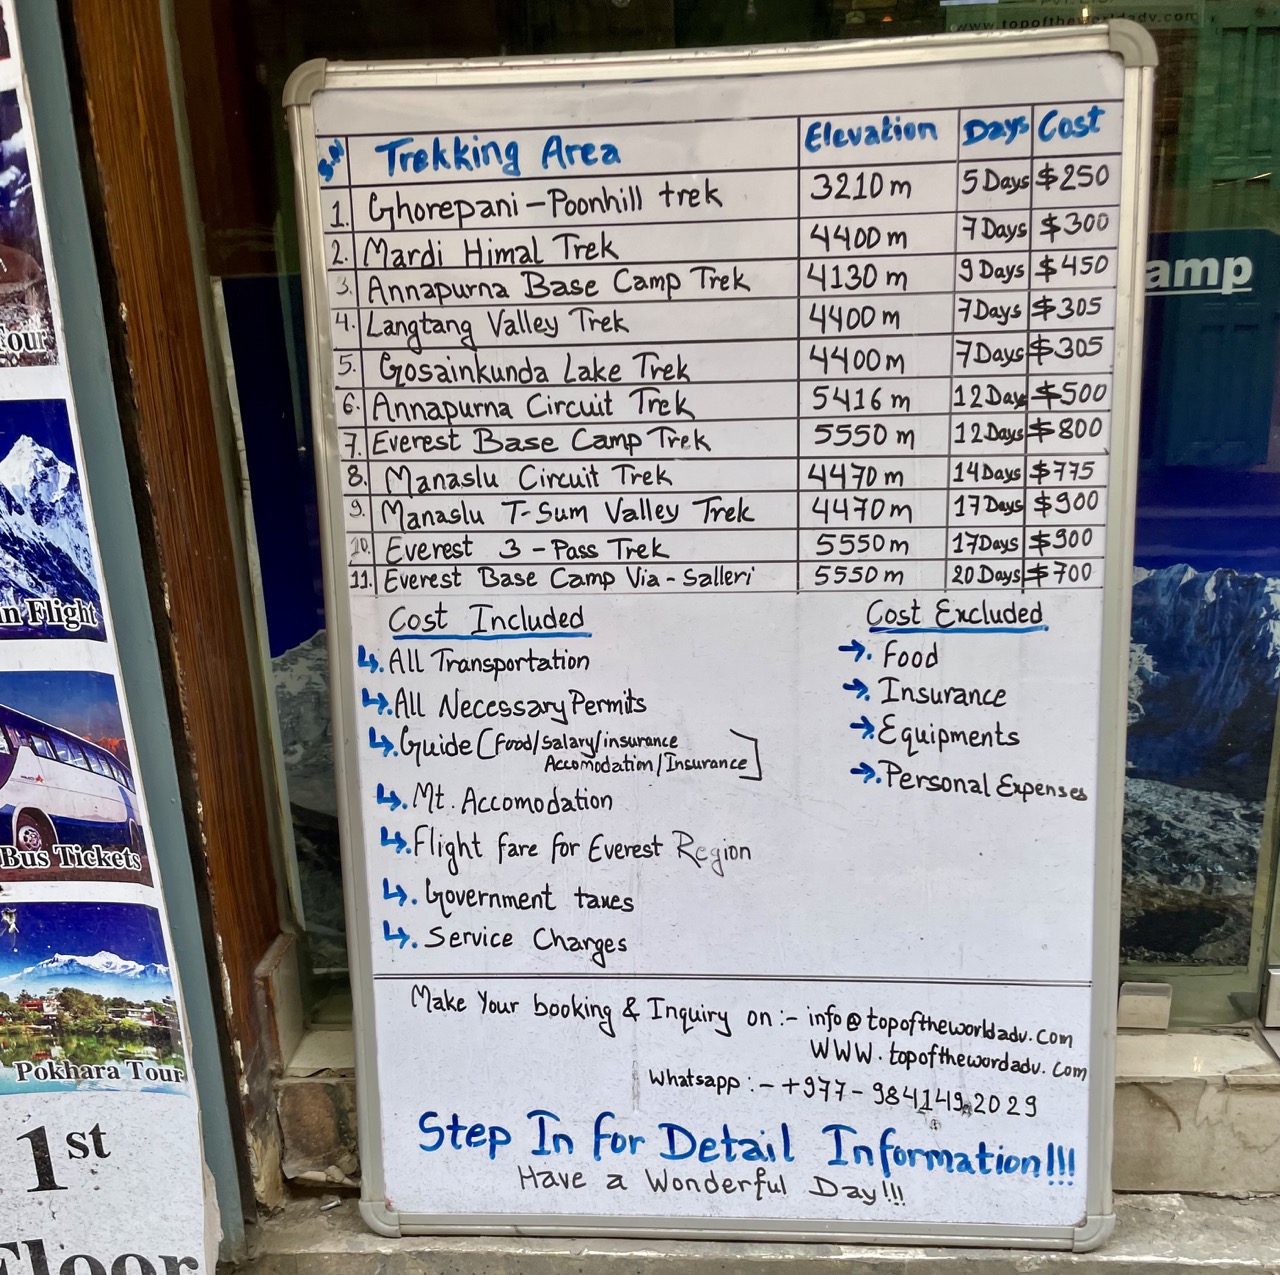 www.topoftheworldadv.com
S.N Trekking Area Elevation Days Cost
1. Ghorepani - Poonhill trek 3210 m 5 Days $250
2. Mardi Himal Trek 4400 m 7 Days $300
3. Annapurna Base Camp Trek 4130 m 9 Days $450
4. Langtang Valley Trek 4400 m 7 Days $305
5. Gosainkunda Lake Trek 4400 m 7 Days $305
6. Annapurna Circuit Trek 5416 m 12 Days $500
7. Everest Base Camp Trek 5550 m 12 Days $800
8. Manaslu Circuit Trek 4470 m 14 Days $775
9. Manaslu T-Sum Valley Trek 4470 m 17 Days $900
10. Everest 3 - Pass Trek 5550 m 17 Days $900
11. Everest Base Camp Via - Salleri 5550 m 20 Days $700
Cost Included
All Transportation
All Necessary Permits
Guide [Food/Salary/insurance
Accomodation/Insurance]
Mt. Accomodation
Flight fare for Everest Region
Government taxes
Service Charges
Cost Excluded
Food
Insurance
Equipments
Personal Expenses
Make Your booking & Inquiry on :- info@topoftheworldadv.com
WWW.topofthewordadv.com
Whatsapp :- +977-9841492029
Step In for Detail Information!!!
Have a Wonderful Day!!!
amp
Tour
n Flight
Bus Tickets
Pokhara Tour
1st
Floor